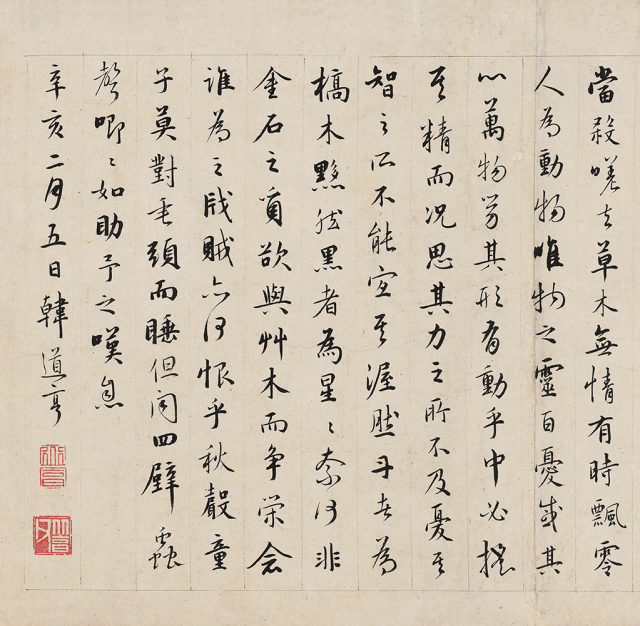 當殺嗟夫草木無情有時飄零
人為動物唯物之靈百憂感其
心萬物勞其形有動乎中必搖
其精而况思其力之所不及憂其
智之所不能宜其渥然丹者為
槁木黟然黑者為星〻奈何非
金石之質欲與艸木而爭榮念
誰為之戕賊亦何恨乎秋聲童
子莫對垂頭而睡但聞四壁蟲
聲唧〻如助予之嘆息
辛亥二月五日韓道亨